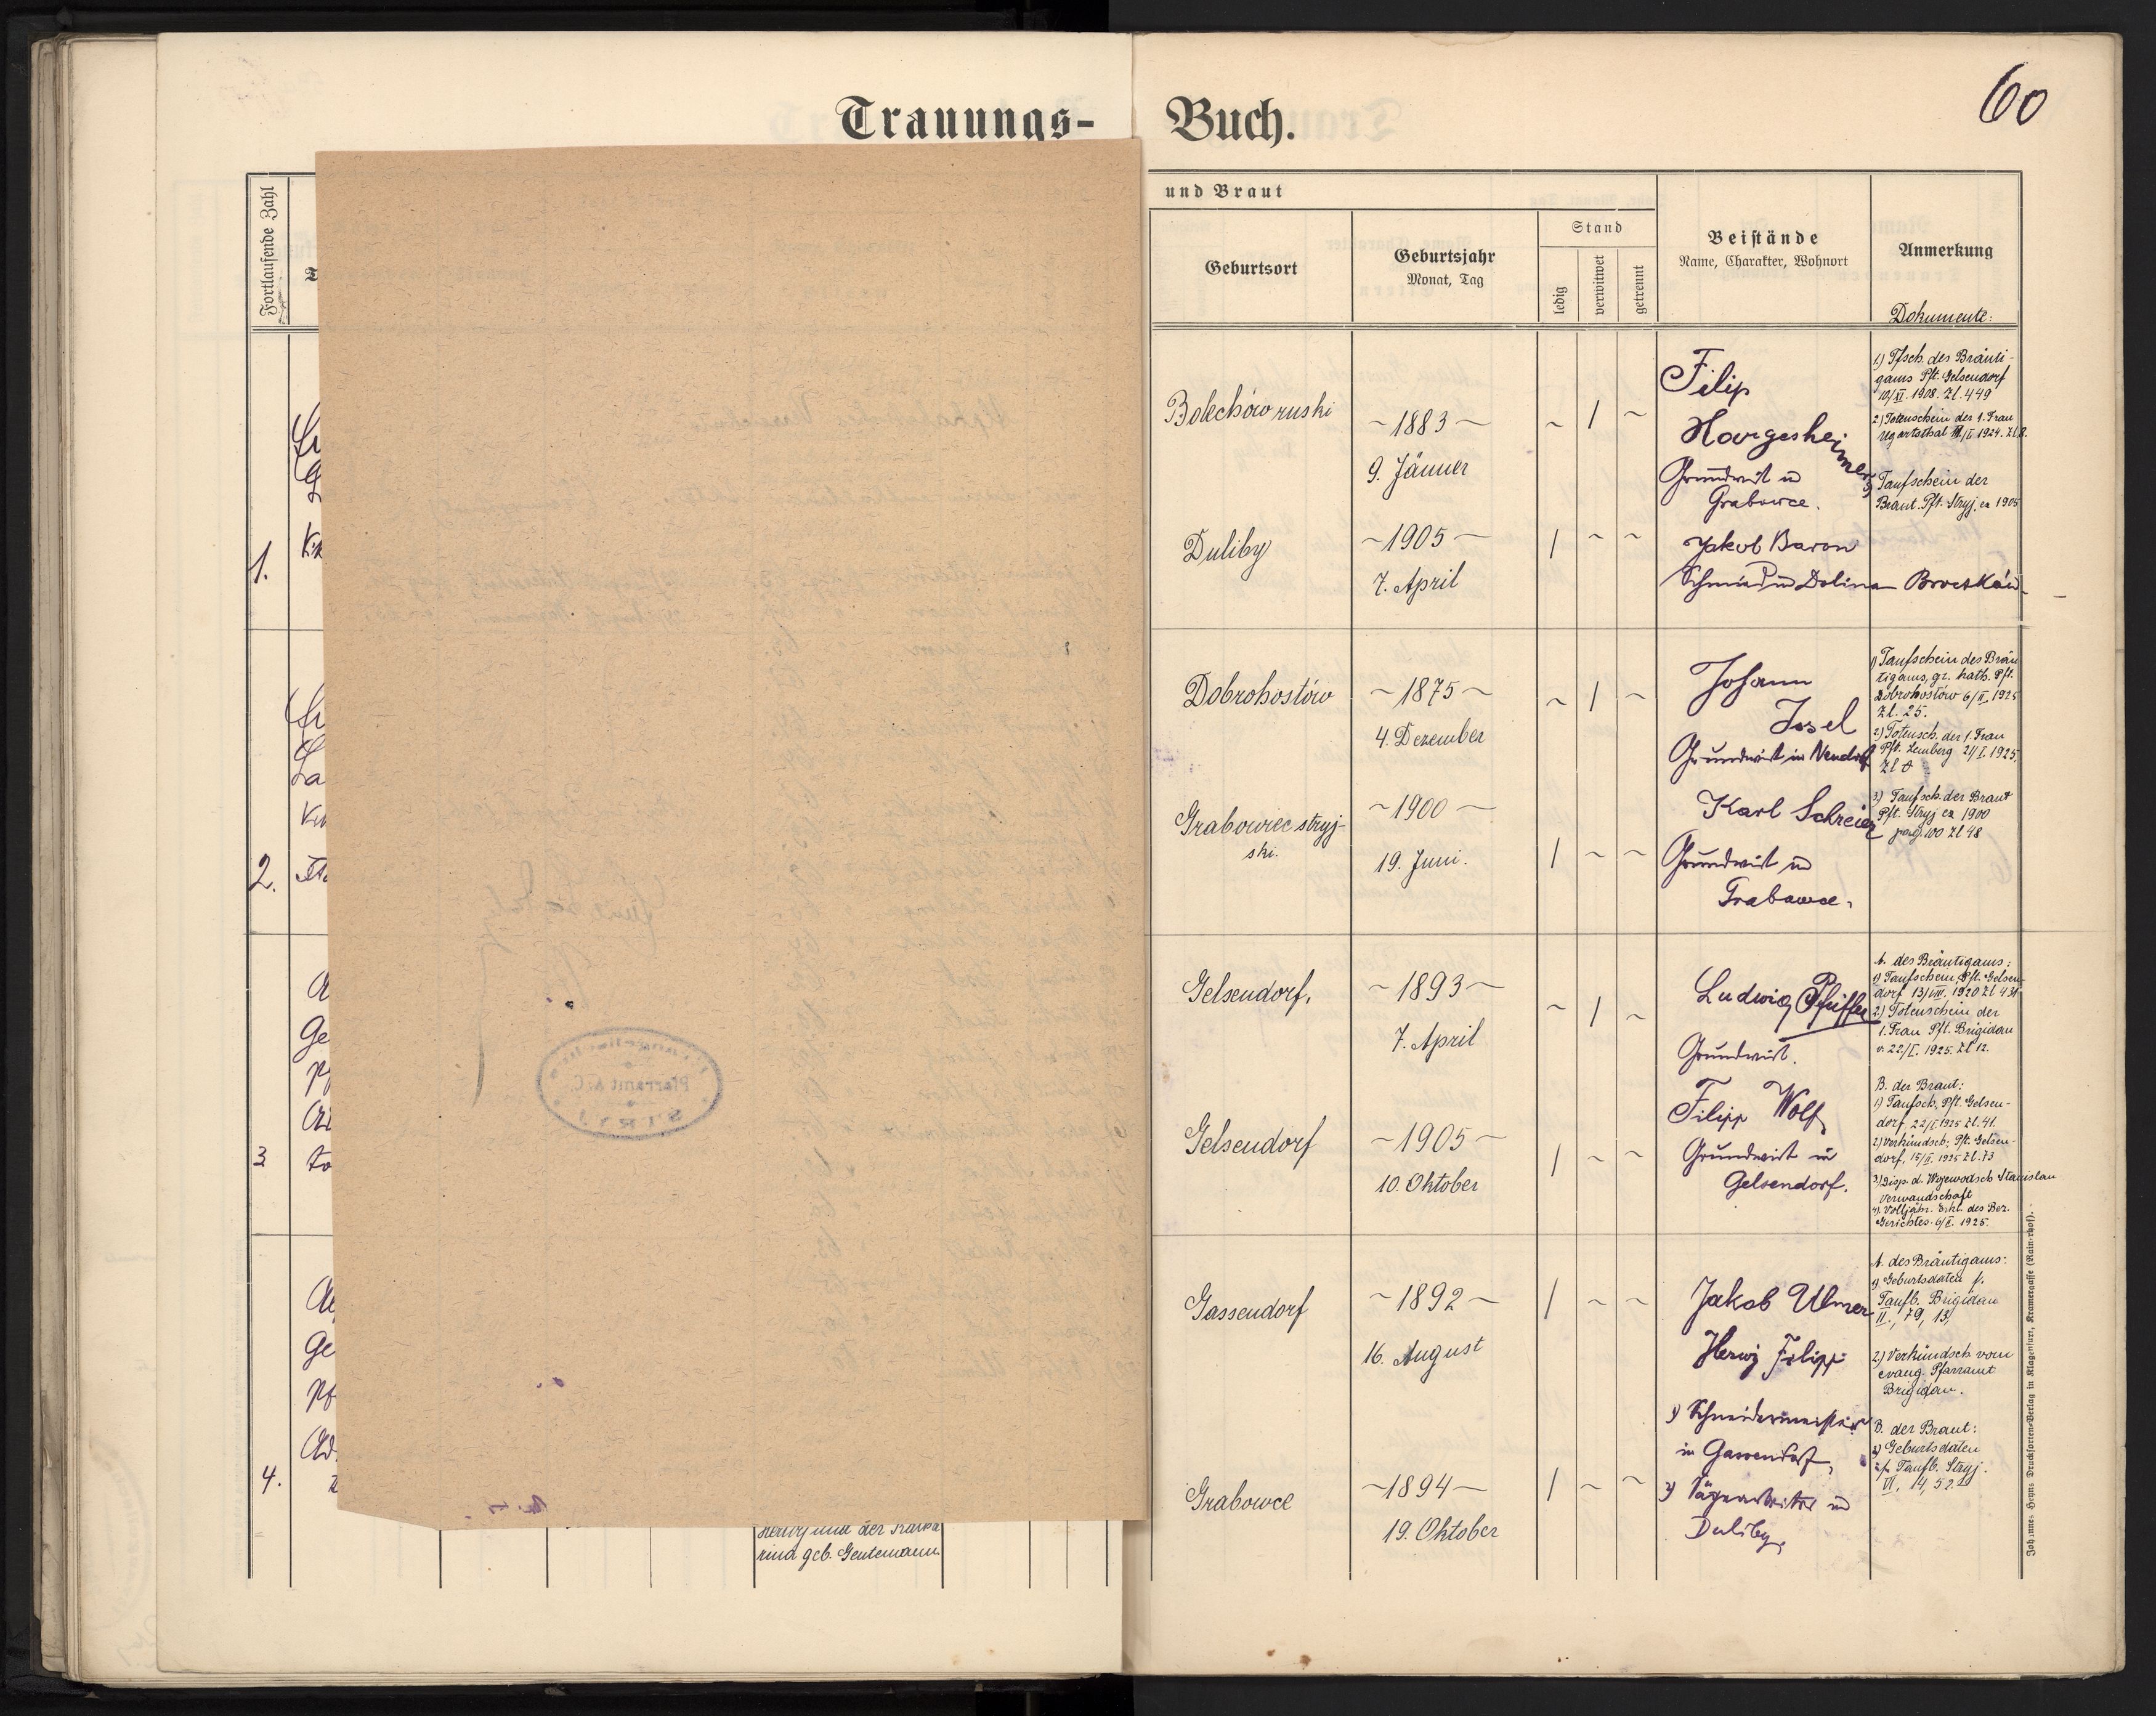 Trauungs-
Buch.
60
Fortlaufende Zahl
und Braut
Geburtsort
Geburtsjahr
Monat, Tag
Stand
ledig
verwitwet
getrennt
Beistände
Name, Charakter, Wohnort
Anmerkung
Dokumente:
1.
Bolechów ruski
~1883~
9. Jänner
~ / ~
Duliby
~1905~
7. April
/ ~ ~
Filip
Hargesheimer
Grundwirt in
Grabowce.
Jakob Baron
Schmied in Dolina
1) Tfsch. des Bräuti-
gams Pft. Gelsendorf
10/XI. 1908. Zl. 449
2) Totenschein der 1. Frau
Ugartsthal 1924. Zl. 8.
3) Taufschein der
Braut. Pft. Stryj, ex 1905
2.
Dobrohostów
~1875~
4. Dezember
~ / ~
Grabowiec stryj-
ski.
~1900~
19. Juni.
/ ~ ~
Johann
Josel
Grundwirt in Neudorf
Karl Schreier
Grundwirt in
Grabowce.
1) Taufschein des Bräu
tigams, gr. kath. Pft.
Dobrohostów 6/II. 1925
Zl. 25.
2) Totensch. der 1. Frau
Pft. Lemberg 24/I. 1925.
Zl
3) Taufsch. der Braut
Pft. Stryj ex 1900
pag. 100 Zl 48
3
Gelsendorf,
~1893~
7. April
~ / ~
Gelsendorf
~1905~
10. Oktober
/ ~ ~
Ludwig Pfeiffer
Grundwirt.
Filipp Wolf
Grundwirt in
Gelsendorf.
A. des Bräutigams:
1) Taufschein, Pft. Gelsen-
dorf 13/VIII. 1920 Zl 431
2) Totenschein der
1. Frau Pft. Brigidau
v. 22/I. 1925. Zl 12.
B. der Braut:
1) Taufsch. Pft. Gelsen-
dorf, 22/I 1925 Zl. 41.
2) Verkündsch. Pft. Gelsen-
dorf, 15/II. 1925 Zl. 73
3) Disp. d. Wojewodsch Stanislau
Verwandschaft
4) Volljähr. Erkl. des Bez.
Gerichtes 6/II. 1925.
4.
Gassendorf
~1892~
16. August
/ ~ ~
Grabowce
~1894~
19. Oktober
/ ~ ~
Jakob Ulmer
Herwig Filipp
1) Schneidermeister
in Gassendorf,
2) Sägearbeiter in
Duliby.
A. des Bräutigams:
1) Geburtsdaten f.
Taufb. Brigidau
II., 79, 13,
2) Verkündsch. vom
evang. Pfarramt
Brigidau.
B. der Braut:
1) Geburtsdaten
Taufb. Stryj.
VI, 14, 52.
Herwig und der Katha
rina geb. Gentemann.
Pfarramt A. C.
STRYJ
Johannes Heyns Drucksorten-Verlag in Klagenfurt, Kramergasse (Rain-rhof).